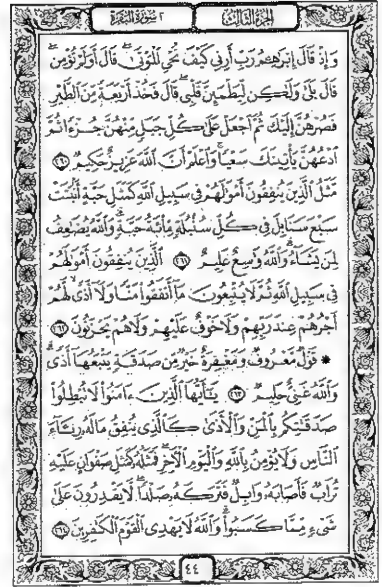 الجزء الثالث ٢ سورة البقرة
وَإِذْ قَالَ إِبْرَٰهِـۧمُ رَبِّ أَرِنِى كَيْفَ تُحْىِ ٱلْمَوْتَىٰ ۖ قَالَ أَوَلَمْ تُؤْمِن ۖ
قَالَ بَلَىٰ وَلَـٰكِن لِّيَطْمَئِنَّ قَلْبِى ۖ قَالَ فَخُذْ أَرْبَعَةً مِّنَ ٱلطَّيْرِ
فَصُرْهُنَّ إِلَيْكَ ثُمَّ ٱجْعَلْ عَلَىٰ كُلِّ جَبَلٍ مِّنْهُنَّ جُزْءًا ثُمَّ
ٱدْعُهُنَّ يَأْتِينَكَ سَعْيًا ۚ وَٱعْلَمْ أَنَّ ٱللَّهَ عَزِيزٌ حَكِيمٌ ٢٦٠
مَّثَلُ ٱلَّذِينَ يُنفِقُونَ أَمْوَٰلَهُمْ فِى سَبِيلِ ٱللَّهِ كَمَثَلِ حَبَّةٍ أَنۢبَتَتْ
سَبْعَ سَنَابِلَ فِى كُلِّ سُنۢبُلَةٍ مِّا۟ئَةُ حَبَّةٍ ۗ وَٱللَّهُ يُضَـٰعِفُ
لِمَن يَشَآءُ ۗ وَٱللَّهُ وَٰسِعٌ عَلِيمٌ ٢٦١ ٱلَّذِينَ يُنفِقُونَ أَمْوَٰلَهُمْ
فِى سَبِيلِ ٱللَّهِ ثُمَّ لَا يُتْبِعُونَ مَآ أَنفَقُوا۟ مَنًّا وَلَآ أَذًى ۙ لَّهُمْ
أَجْرُهُمْ عِندَ رَبِّهِمْ وَلَا خَوْفٌ عَلَيْهِمْ وَلَا هُمْ يَحْزَنُونَ ٢٦٢
۞ قَوْلٌ مَّعْرُوفٌ وَمَغْفِرَةٌ خَيْرٌ مِّن صَدَقَةٍ يَتْبَعُهَآ أَذًى ۗ
وَٱللَّهُ غَنِىٌّ حَلِيمٌ ٢٦٣ يَـٰٓأَيُّهَا ٱلَّذِينَ ءَامَنُوا۟ لَا تُبْطِلُوا۟
صَدَقَـٰتِكُم بِٱلْمَنِّ وَٱلْأَذَىٰ كَٱلَّذِى يُنفِقُ مَالَهُۥ رِئَآءَ
ٱلنَّاسِ وَلَا يُؤْمِنُ بِٱللَّهِ وَٱلْيَوْمِ ٱلْـَٔاخِرِ ۖ فَمَثَلُهُۥ كَمَثَلِ صَفْوَانٍ عَلَيْهِ
تُرَابٌ فَأَصَابَهُۥ وَابِلٌ فَتَرَكَهُۥ صَلْدًا ۖ لَّا يَقْدِرُونَ عَلَىٰ
شَىْءٍ مِّمَّا كَسَبُوا۟ ۗ وَٱللَّهُ لَا يَهْدِى ٱلْقَوْمَ ٱلْكَـٰفِرِينَ ٢٦٤
٤٤